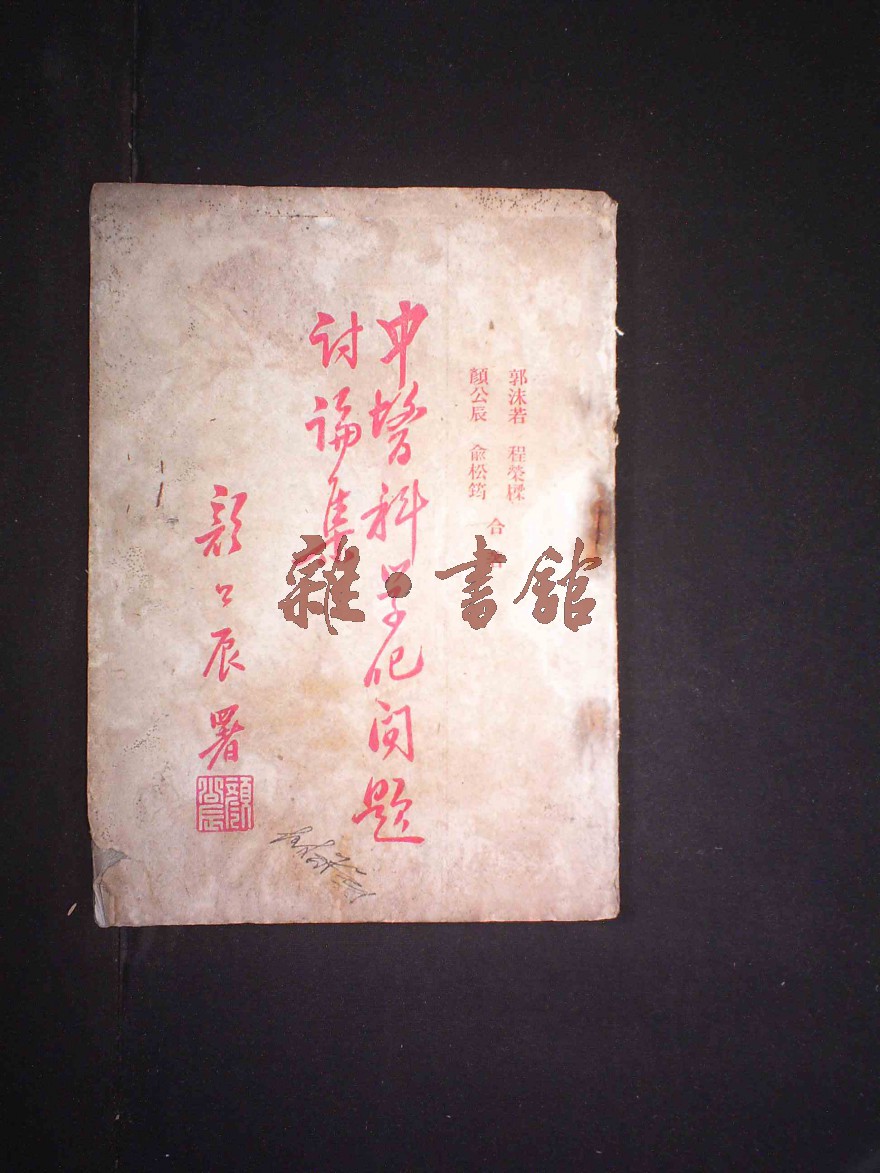 郭沫若　程榮樑
顏公辰　俞松筠
合
中醫科學化問題
討論集
顏公辰署
顏公辰
雜·書館